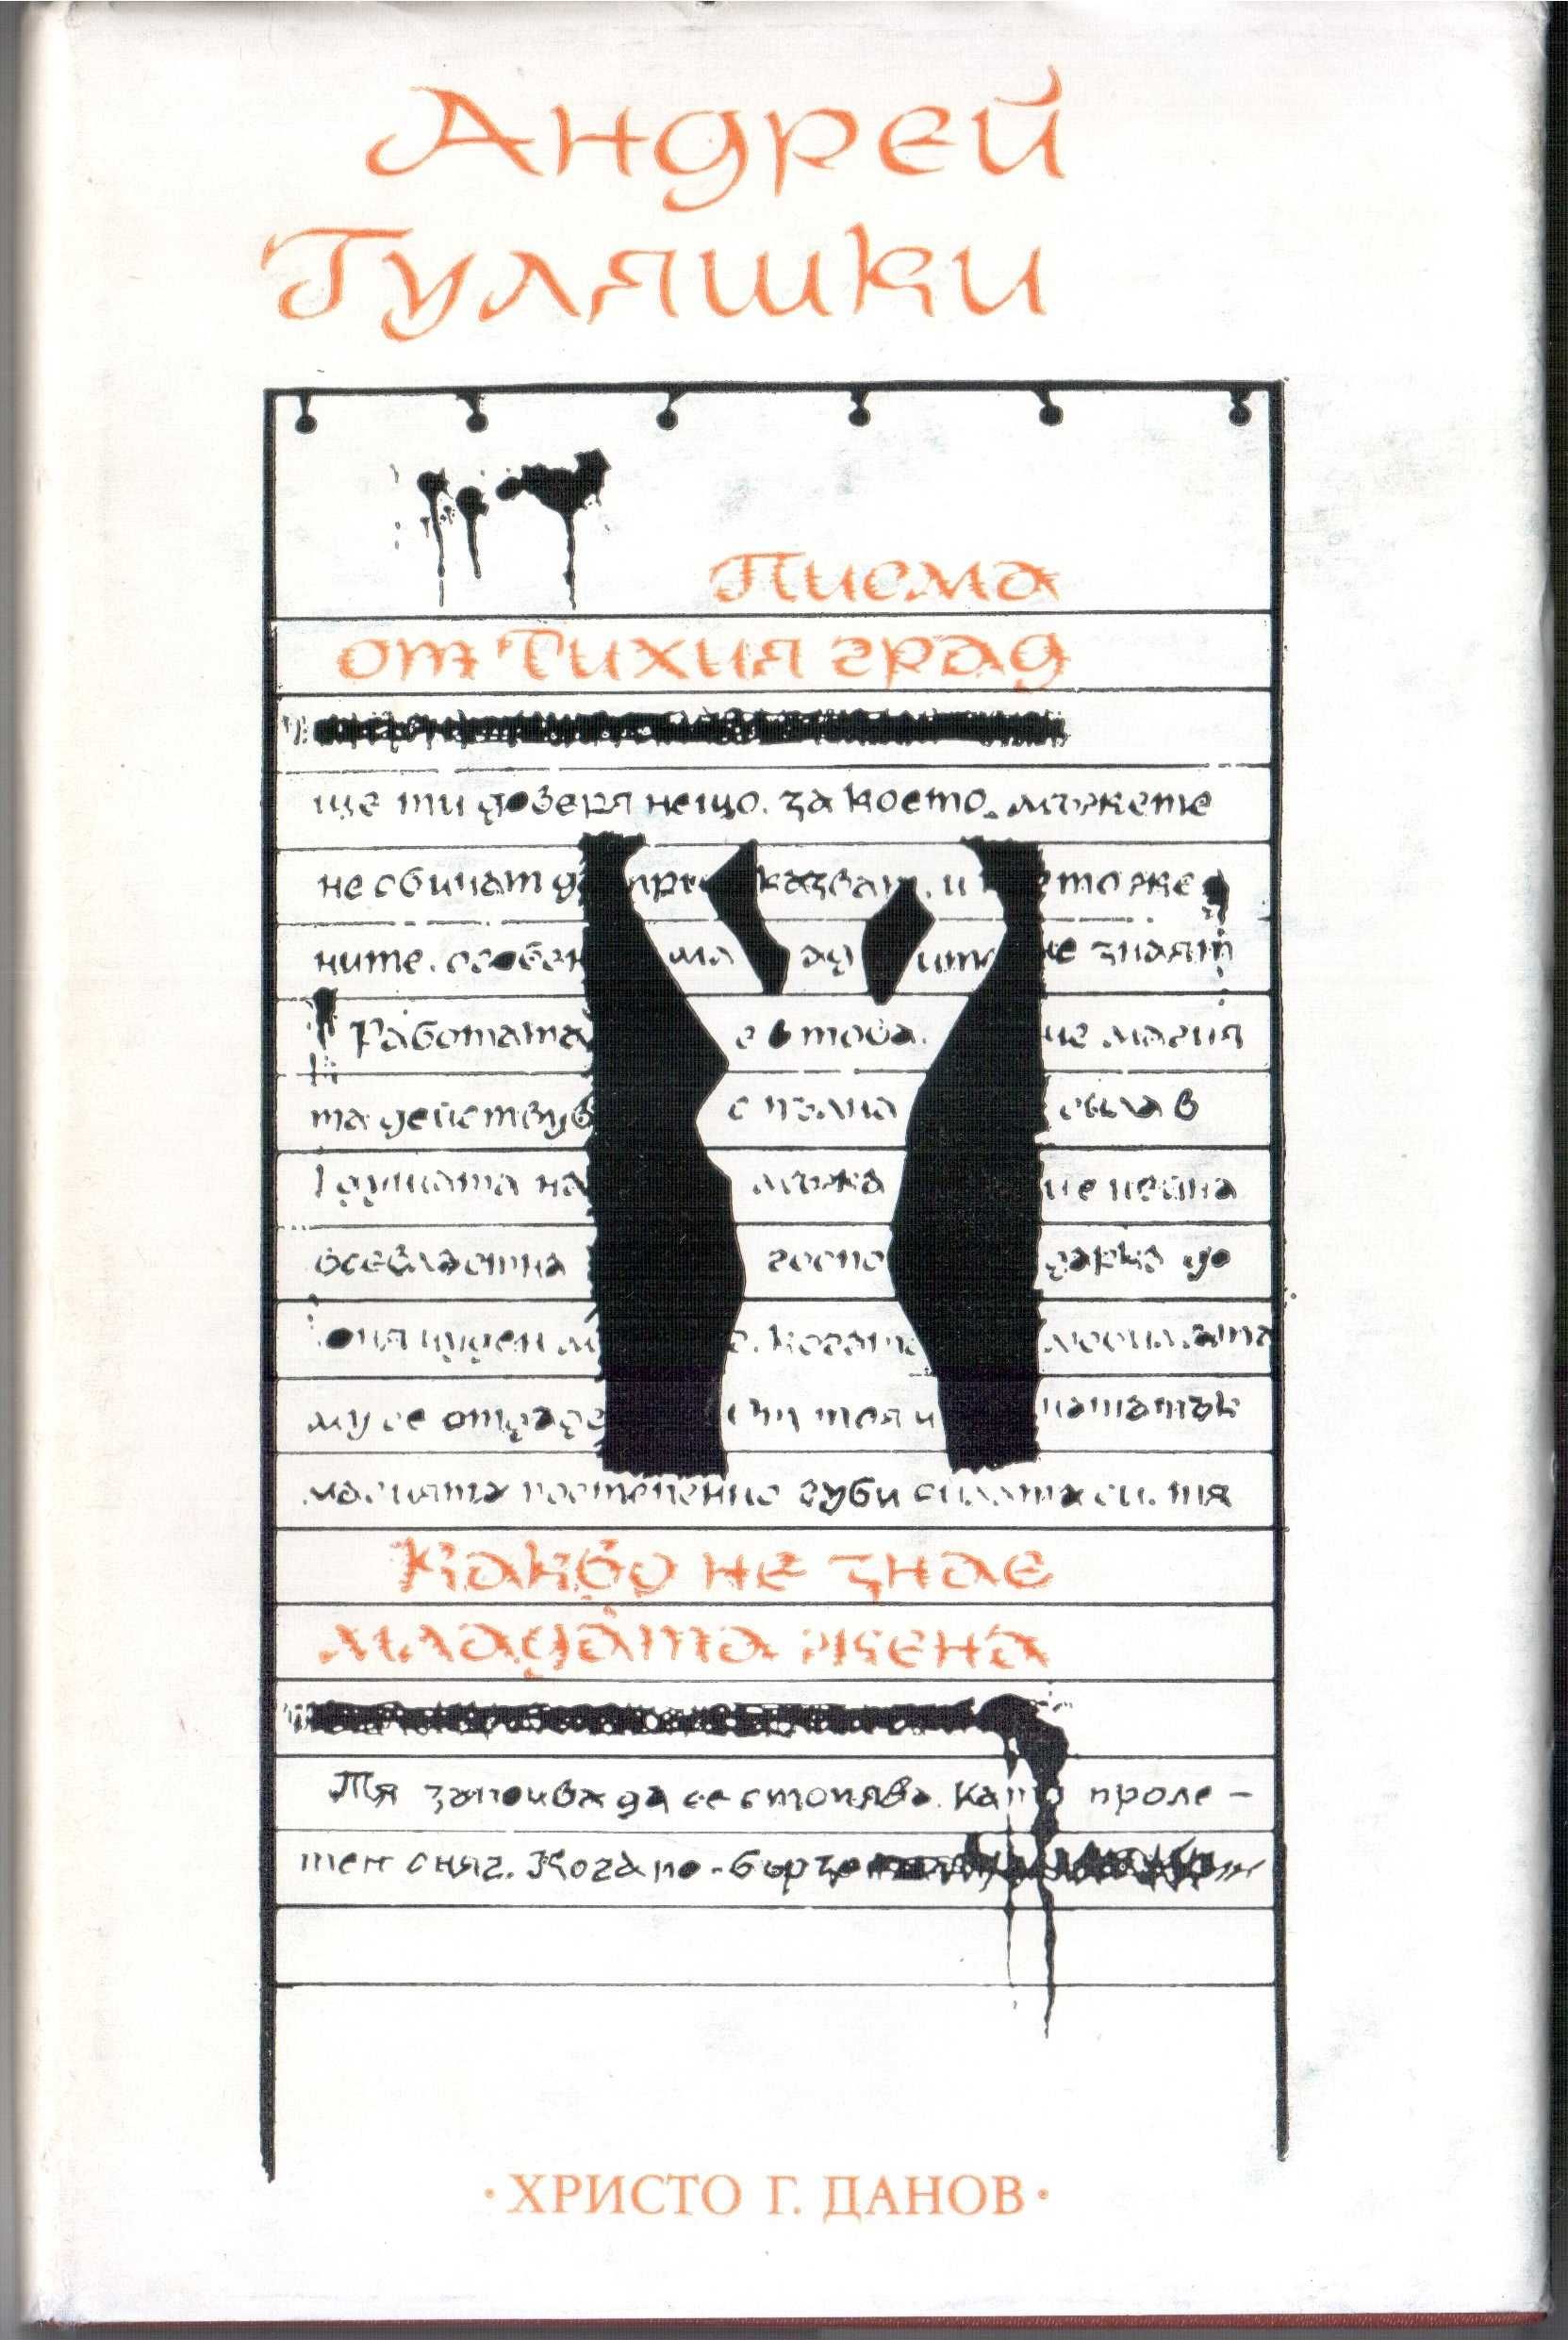 Андрей
Гуляшки
Писма
от Тихия град
ще ти доверя нещо, за което мъжете
не обичат да казват, и което же
ните, особен мла ди не знаят
Работата е в това, че магия
та действув с пълна сила в
годината на мъжа е
всевластна госпо дарка до
оня чуден м когато
му се отдаде Из тоя нататък
магията постепенно губи силата си. тя
Какво не знае
младата жена
Тя започва да се стопява. като проле-
тен сняг. Кога по-бързо
·ХРИСТО Г. ДАНОВ·